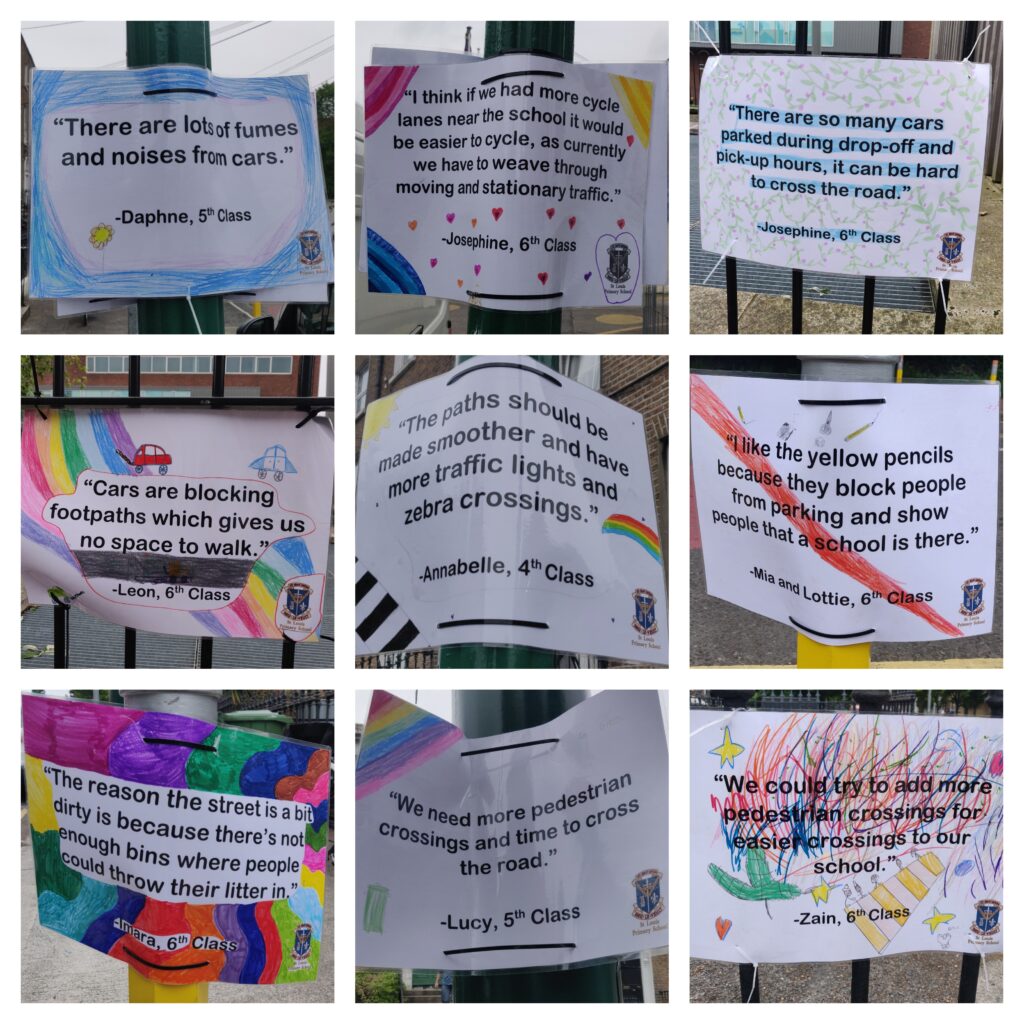 “There are lots of fumes
and noises from cars.”
-Daphne, 5th Class
St Louis
Primary School
“I think if we had more cycle
lanes near the school it would
be easier to cycle, as currently
we have to weave through
moving and stationary traffic.”
-Josephine, 6th Class
St Louis
Primary School
“There are so many cars
parked during drop-off and
pick-up hours, it can be hard
to cross the road.”
-Josephine, 6th Class
St Louis
Primary School
“Cars are blocking
footpaths which gives us
no space to walk.”
-Leon, 6th Class
St Louis
Primary School
“The paths should be
made smoother and have
more traffic lights and
zebra crossings.”
-Annabelle, 4th Class
St Louis
Primary School
“I like the yellow pencils
because they block people
from parking and show
people that a school is there.”
-Mia and Lottie, 6th Class
St Louis
Primary School
“The reason the street is a bit
dirty is because there’s not
enough bins where people
could throw their litter in.”
-Imara, 6th Class
“We need more pedestrian
crossings and time to cross
the road.”
-Lucy, 5th Class
St Louis
Primary School
“We could try to add more
pedestrian crossings for
easier crossings to our
school.”
-Zain, 6th Class
St Louis
Primary School